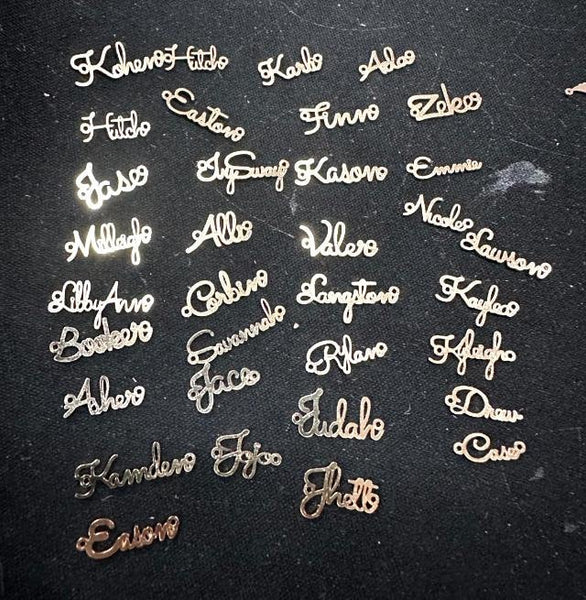 Kohen Hutch Karli Ada
Hutch Easton Finn Zeke
Jase IvySway Kason Emmie
Milleigh Alli Valer Nicole Lawson
LibbyAnn Corbin Langston Kayla
Booker Savannah Rylan Kyleigh
Asher Jace Judah Drew
Case
Kamden Jojo Jhett
Eason